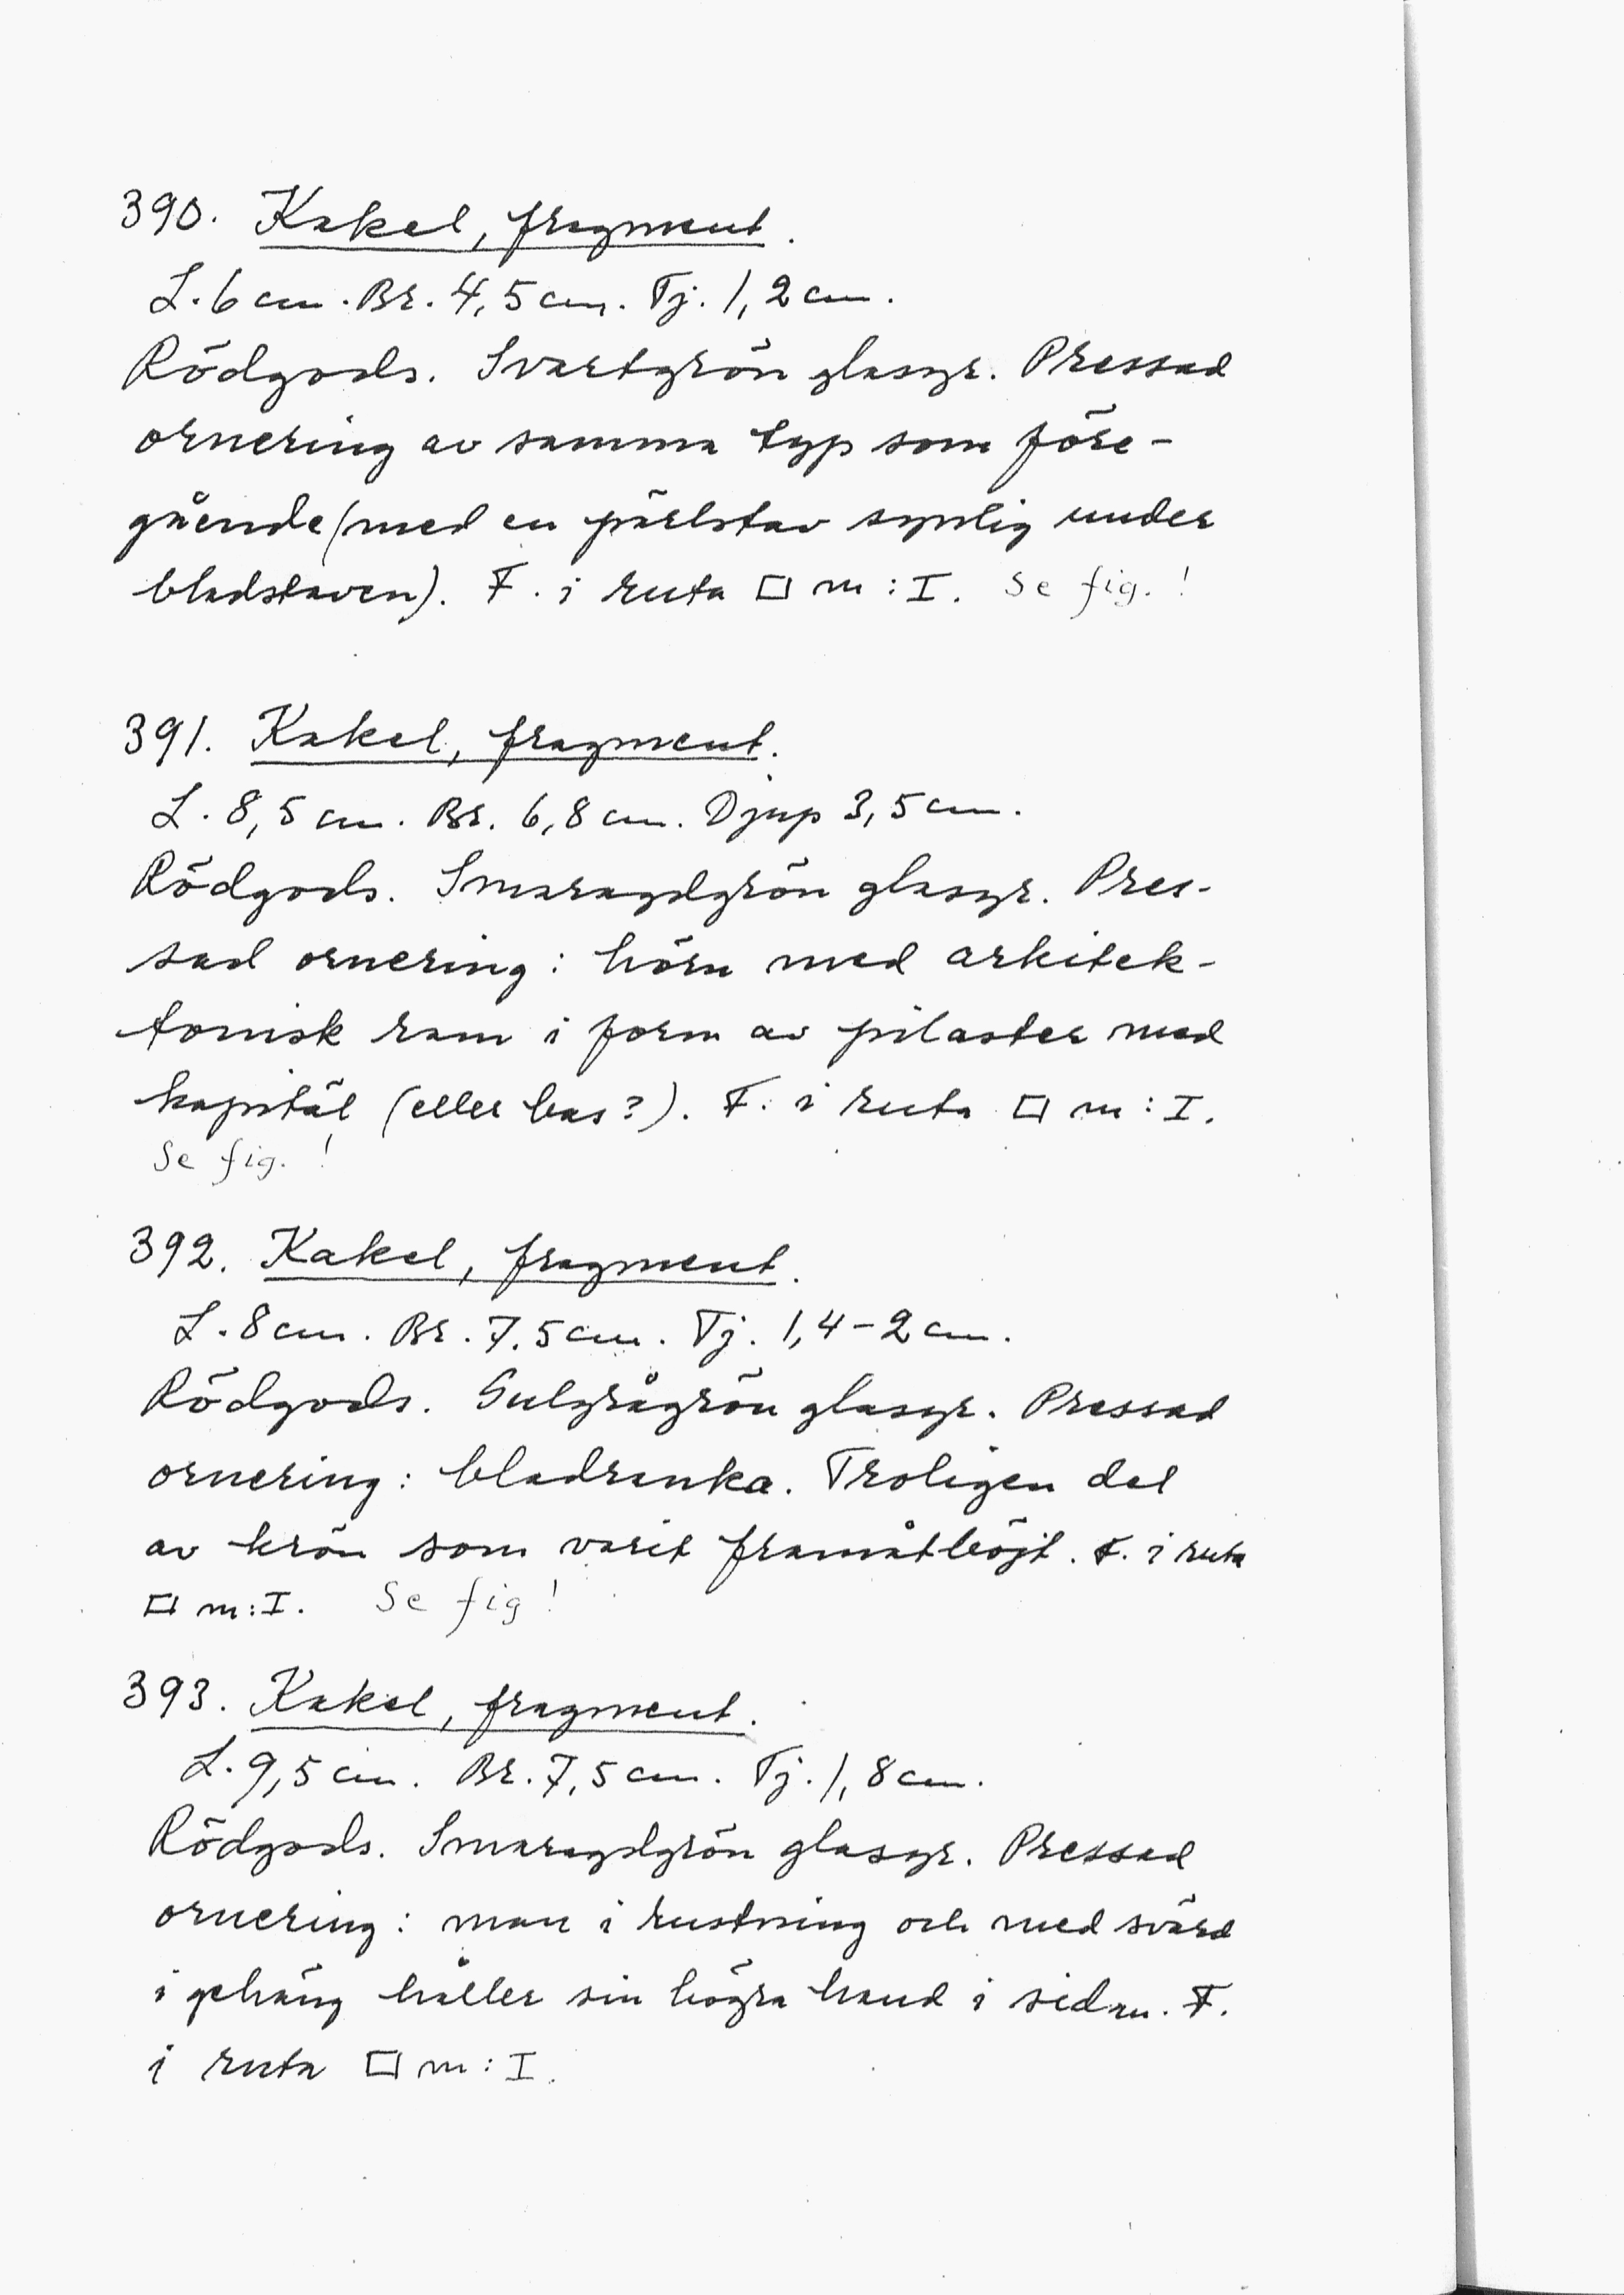 390. Kakel, fragment.
L. 6 cm. Br. 4,5 cm. Tj. 1,2 cm.
Rödgods. Svartgrön glasyr. Pressad
ornering av samma typ som före-
gående (med en pärlstav synlig under
bladstaven). F. i ruta □ m : I. Se fig. !
391. Kakel, fragment.
L. 8,5 cm. Br. 6,8 cm. Djup 3,5 cm.
Rödgods. Smaragdgrön glasyr. Pres-
sad ornering : hörn med arkitek-
tonisk ram i form av pilaster med
kapitäl (eller bas?). F. i ruta □ m : I.
Se fig. !
392. Kakel, fragment.
L. 8 cm. Br. 7,5 cm. Tj. 1,4 - 2 cm.
Rödgods. Gulgrågrön glasyr. Pressad
ornering : bladranka. Troligen del
av krön som varit framåtböjt. F. i ruta
□ m : I. Se fig !
393. Kakel, fragment.
L. 9,5 cm. Br. 7,5 cm. Tj. 1,8 cm.
Rödgods. Smaragdgrön glasyr. Pressad
ornering : man i rustning och med svärd
i gehäng håller sin högra hand i sidan. F.
i ruta □ m : I.